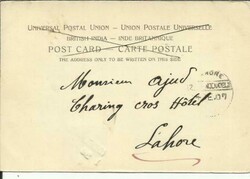 UNIVERSAL POSTAL UNION – UNION POSTALE UNIVERSELLE
BRITISH INDIA – INDE BRITANNIQUE
POST CARD – CARTE POSTALE
THE ADDRESS ONLY TO BE WRITTEN ON THIS SIDE
Monsieur
Charing cros Hôtel
Lahore